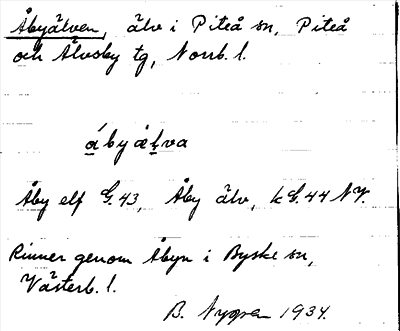 Åbyälven, älv i Piteå sn, Piteå
och Älvsby tg, Norrb. l.
ábyæ̀ḷva
Åby elf G. 43, Åby älv, k G. 44 NV.
Rinner genom Åbyn i Byske sn,
Västerb. l.
B. Nygren 1934.